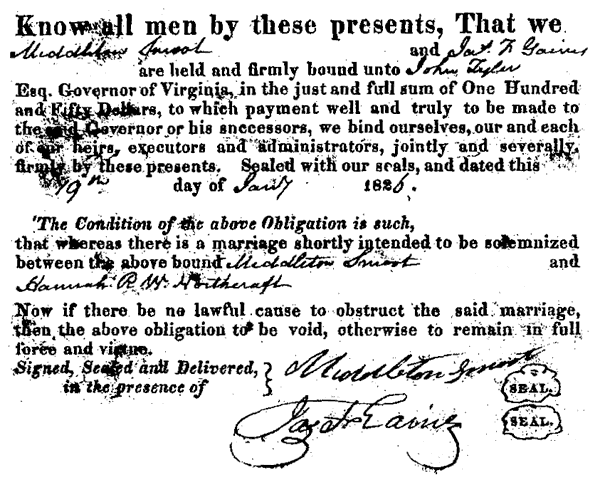 Know all men by these presents, That we
Middleton Smoot and Jas. F Gaines
are held and firmly bound unto John Tyler
Esq. Governor of Virginia, in the just and full sum of One Hundred
and Fifty Dollars, to which payment well and truly to be made to
the said Governor or his snccessors, we bind ourselves, our and each
of our heirs, executors and administrators, jointly and severally,
firmly by these presents. Sealed with our seals, and dated this
19th day of Jany 1826.
The Condition of the above Obligation is such,
that whereas there is a marriage shortly intended to be solemnized
between the above bound Middleton Smoot and
Hannah P. W. Northcraft
Now if there be no lawful cause to obstruct the said marriage,
then the above obligation to be void, otherwise to remain in full
force and virtue.
Signed, Sealed and Delivered, } Middleton Smoot SEAL.
in the presence of
Jas F Gaines SEAL.